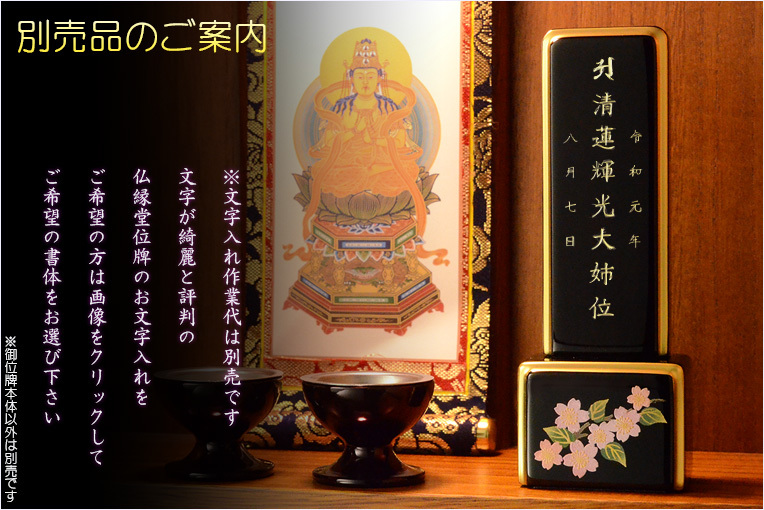 別売品のご案内
※文字入れ作業代は別売です
文字が綺麗と評判の
仏縁堂位牌のお文字入れを
ご希望の方は画像をクリックして
ご希望の書体をお選び下さい
※御位牌本体以外は別売です
令和元年
清蓮輝光大姉位
八月七日